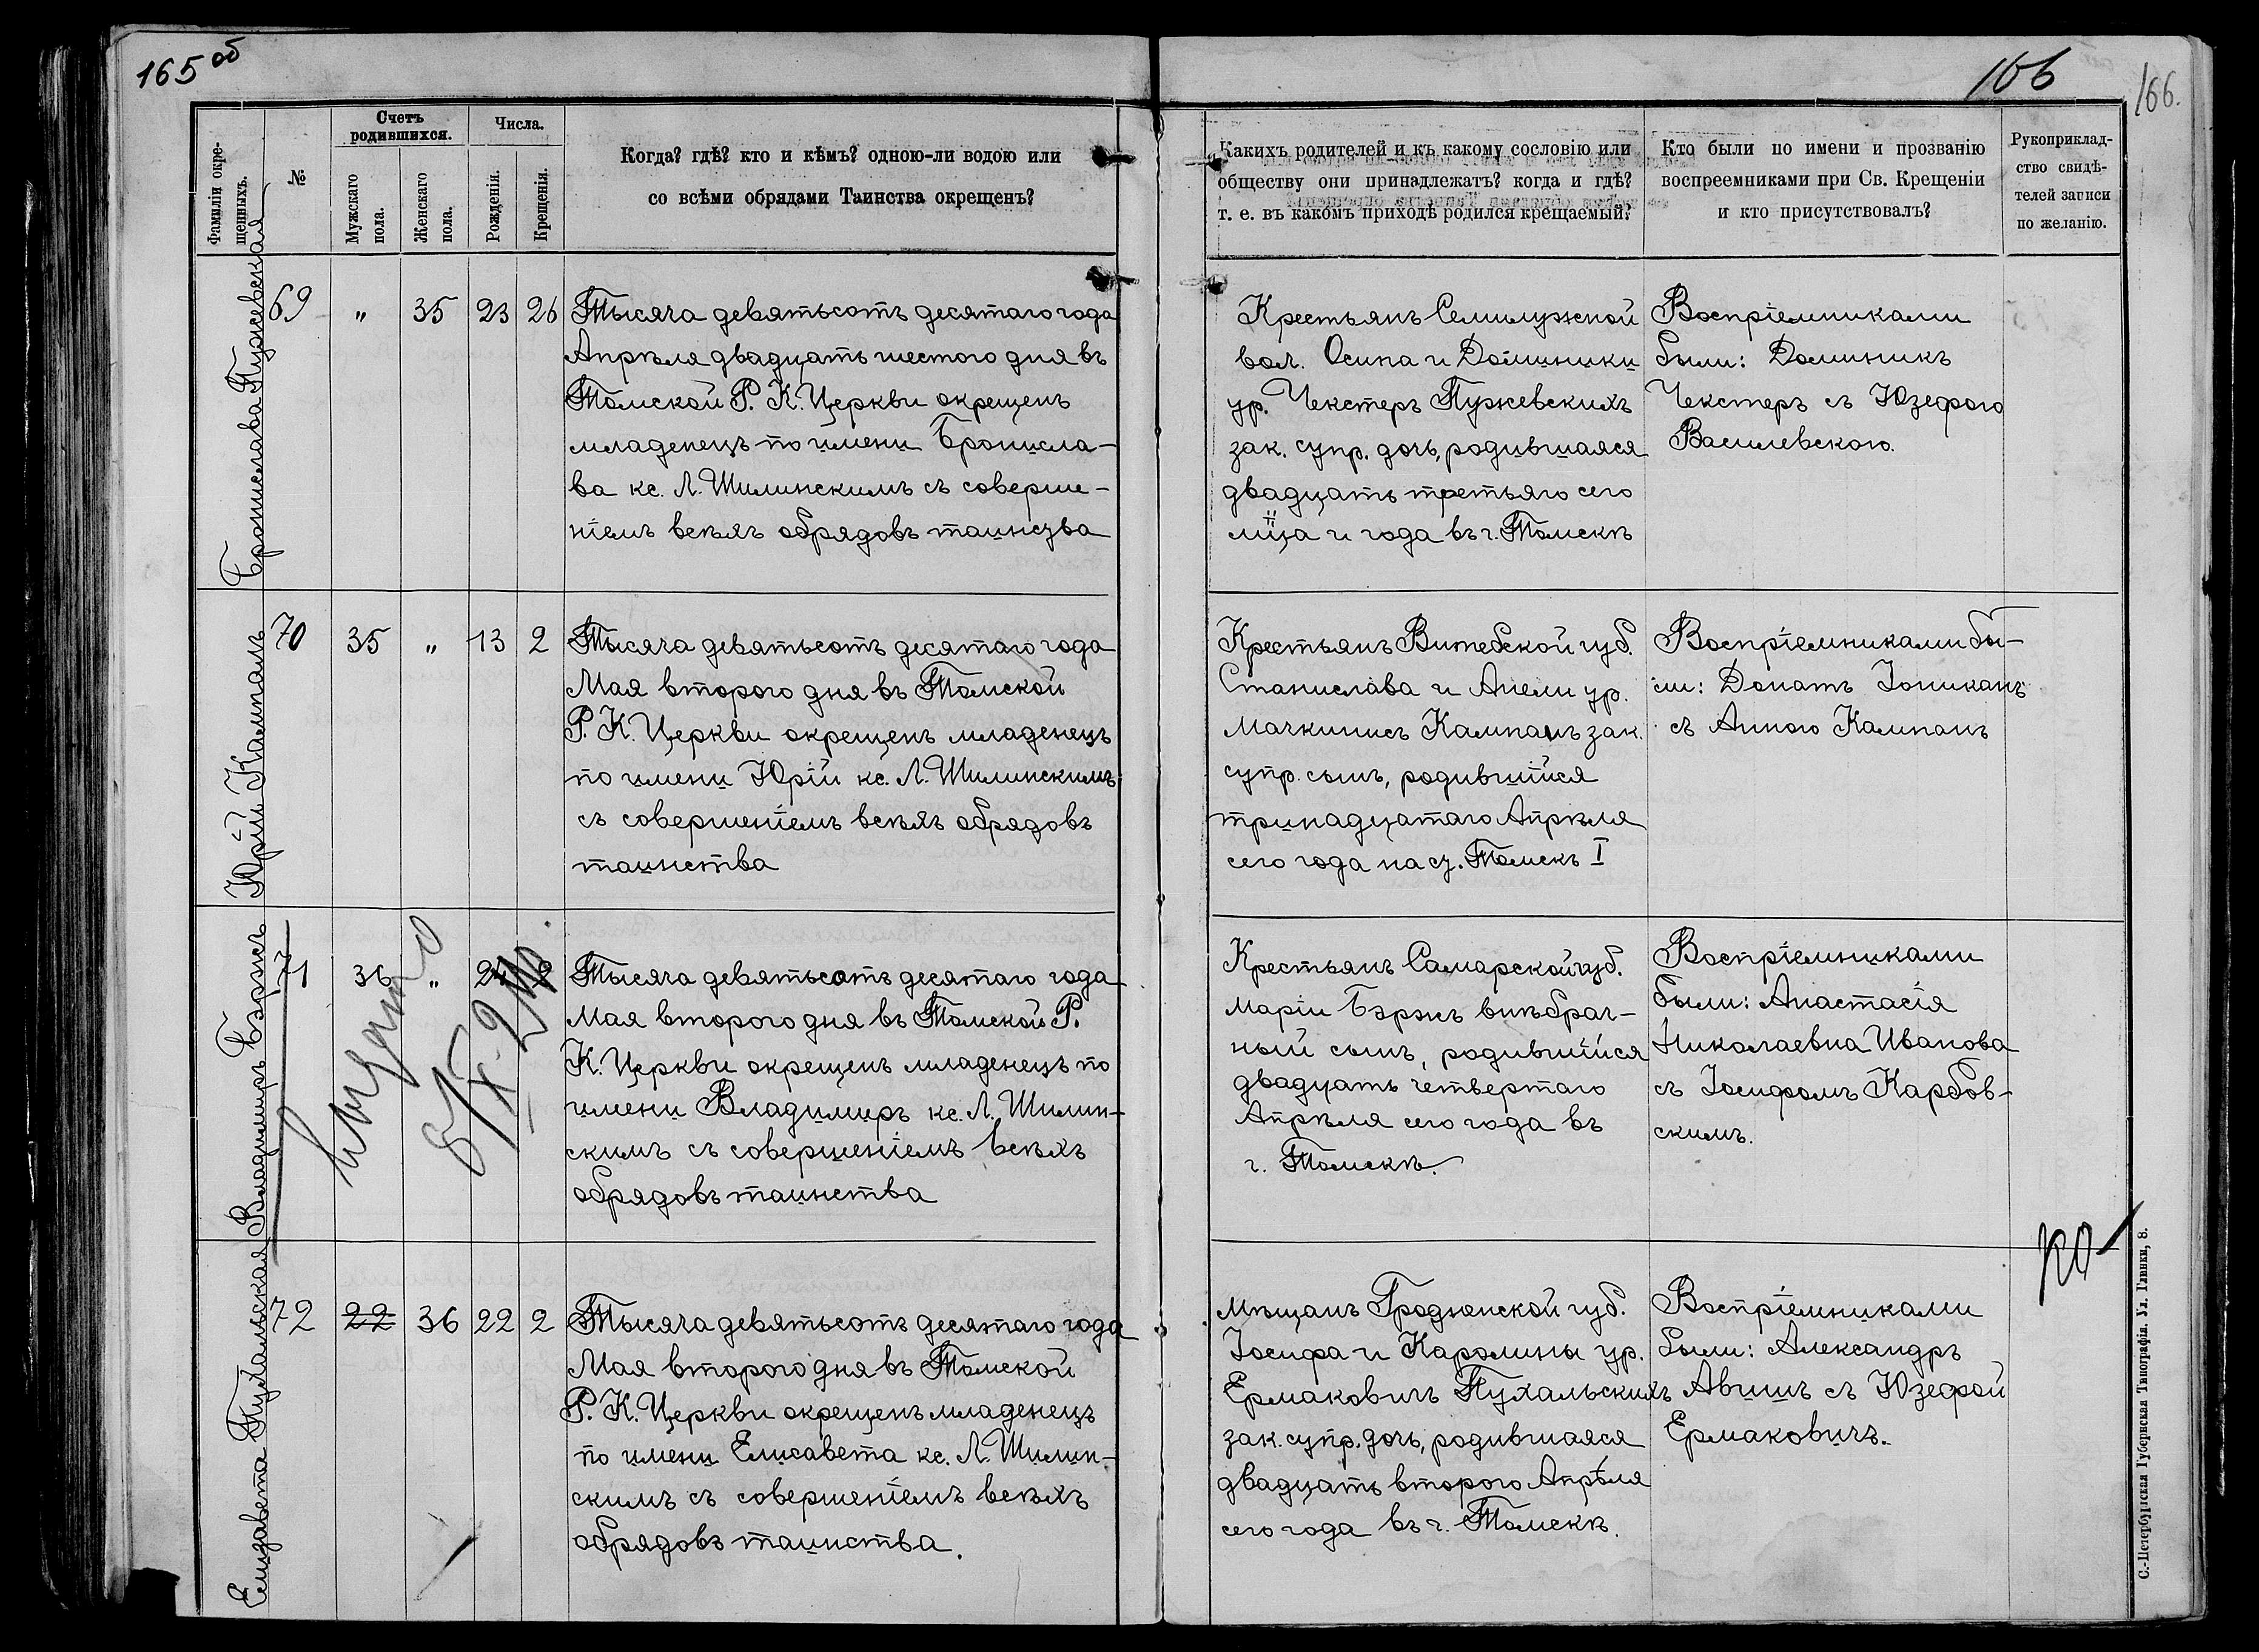 165 об
166
166.
Фамиліи окре-
щенныхъ.
№
Счетъ
родившихся.
Мужскаго
пола.
Женскаго
пола.
Числа.
Рожденія.
Крещенія.
Когда? гдѣ? кто и кѣмъ? одною-ли водою или
со всѣми обрядами Таинства окрещенъ?
Какихъ родителей и къ какому сословію или
обществу они принадлежатъ? когда и гдѣ?
т. е. въ какомъ приходѣ родился крещаемый?
Кто были по имени и прозванію
воспреемниками при Св. Крещеніи
и кто присутствовалъ?
Рукоприклад-
ство свидѣ-
телей записи
по желанію.
Бронислава Пужевская
69 " 35 23 26
Тысяча девятьсотъ десятаго года
Апрѣля двадцать шестого дня въ
Томской Р. К. Церкви окрещенъ
младенецъ по имени Бронисла-
ва кс. Л. Шилинскимъ съ соверше-
ніемъ всѣхъ обрядовъ таинства
Крестьянъ Семилужной
вол. Осипа и Доминики
ур. Чекстеръ Пужевскихъ
зак. супр. дочь, родившаяся
двадцать третьяго сего
мца и года въ г. Томскѣ
Воспріемниками
были: Доминикъ
Чекстеръ съ Юзефою
Василевскою.
Юрій Кампанъ
70 35 " 13 2
Тысяча девятьсотъ десятаго года
Мая второго дня въ Томской
Р. К. Церкви окрещенъ младенецъ
по имени Юрій кс. Л. Шилинскимъ
съ совершеніемъ всѣхъ обрядовъ
таинства
Крестьянъ Витебской губ.
Станислава и Анели ур.
Мачкинисъ Кампанъ зак.
супр. сынъ, родившійся
тринадцатаго Апрѣля
сего года на ст. Томскъ I
Воспріемниками бы-
ли: Донатъ Іониканъ
съ Анною Кампанъ
Владимиръ Бэржъ
71 36 " 24 2
Тысяча девятьсотъ десятаго года
Мая второго дня въ Томской Р.
К. Церкви окрещенъ младенецъ по
имени Владимиръ кс. Л. Шилин-
скимъ съ совершеніемъ всѣхъ
обрядовъ таинства
Крестьянъ Самарской губ.
Маріи Бэржъ внѣбрач-
ный сынъ, родившійся
двадцать четвертаго
Апрѣля сего года въ
г. Томскѣ.
Воспріемниками
были: Анастасія
Николаевна Иванова
съ Іосифомъ Карбов-
скимъ.
Елизавета Пухальская
72 22 36 22 2
Тысяча девятьсотъ десятаго года
Мая второго дня въ Томской
Р. К. Церкви окрещенъ младенецъ
по имени Елисавета кс. Л. Шилин-
скимъ съ совершеніемъ всѣхъ
обрядовъ таинства.
Мѣщанъ Гродненской губ.
Іосифа и Каролины ур.
Ермаковичъ Пухальскихъ
зак. супр. дочь, родившаяся
двадцать второго Апрѣля
сего года въ г. Томскѣ.
Воспріемниками
были: Александръ
Авшиъ съ Юзефой
Ермаковичъ.
С.-Петербургская Губернская Типографія. Ул. Глинки, 8.